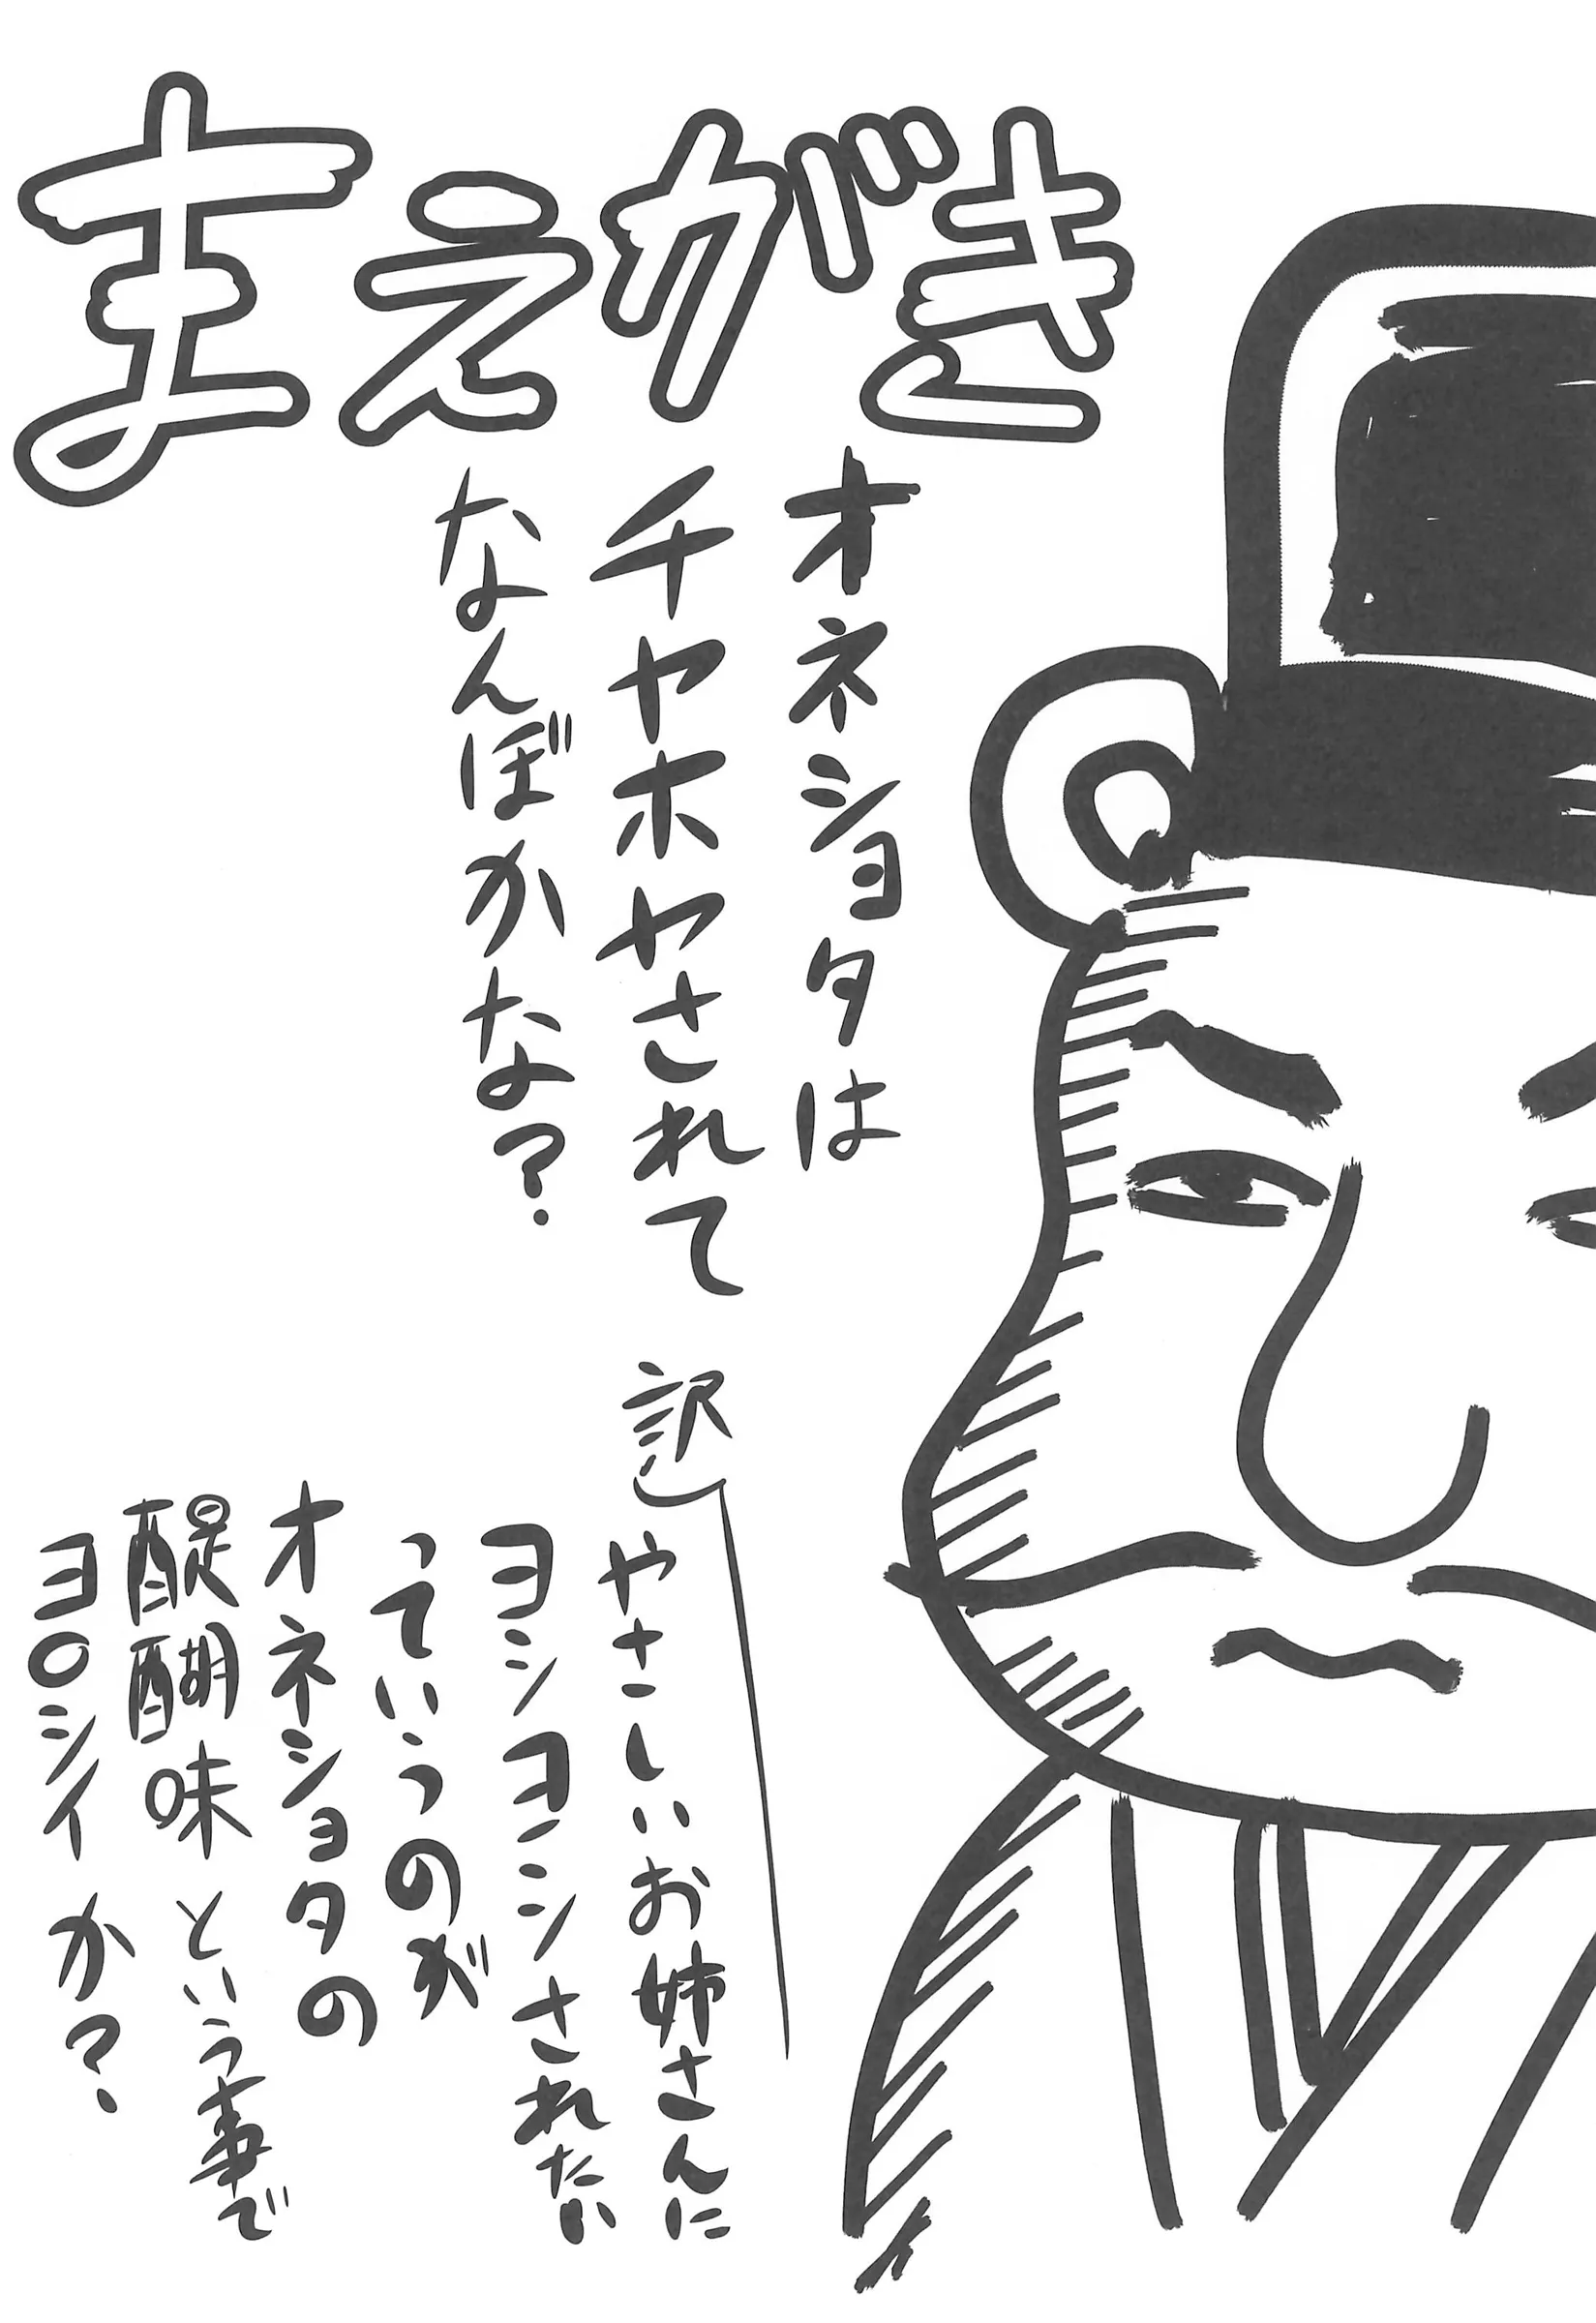 まえがき
オネショタは
チヤホヤされて
なんぼかな？
訳し
やさしいお姉さんに
ヨシヨシされたい
っていうのが
オネショタの
醍醐味という事で
ヨロシイか？